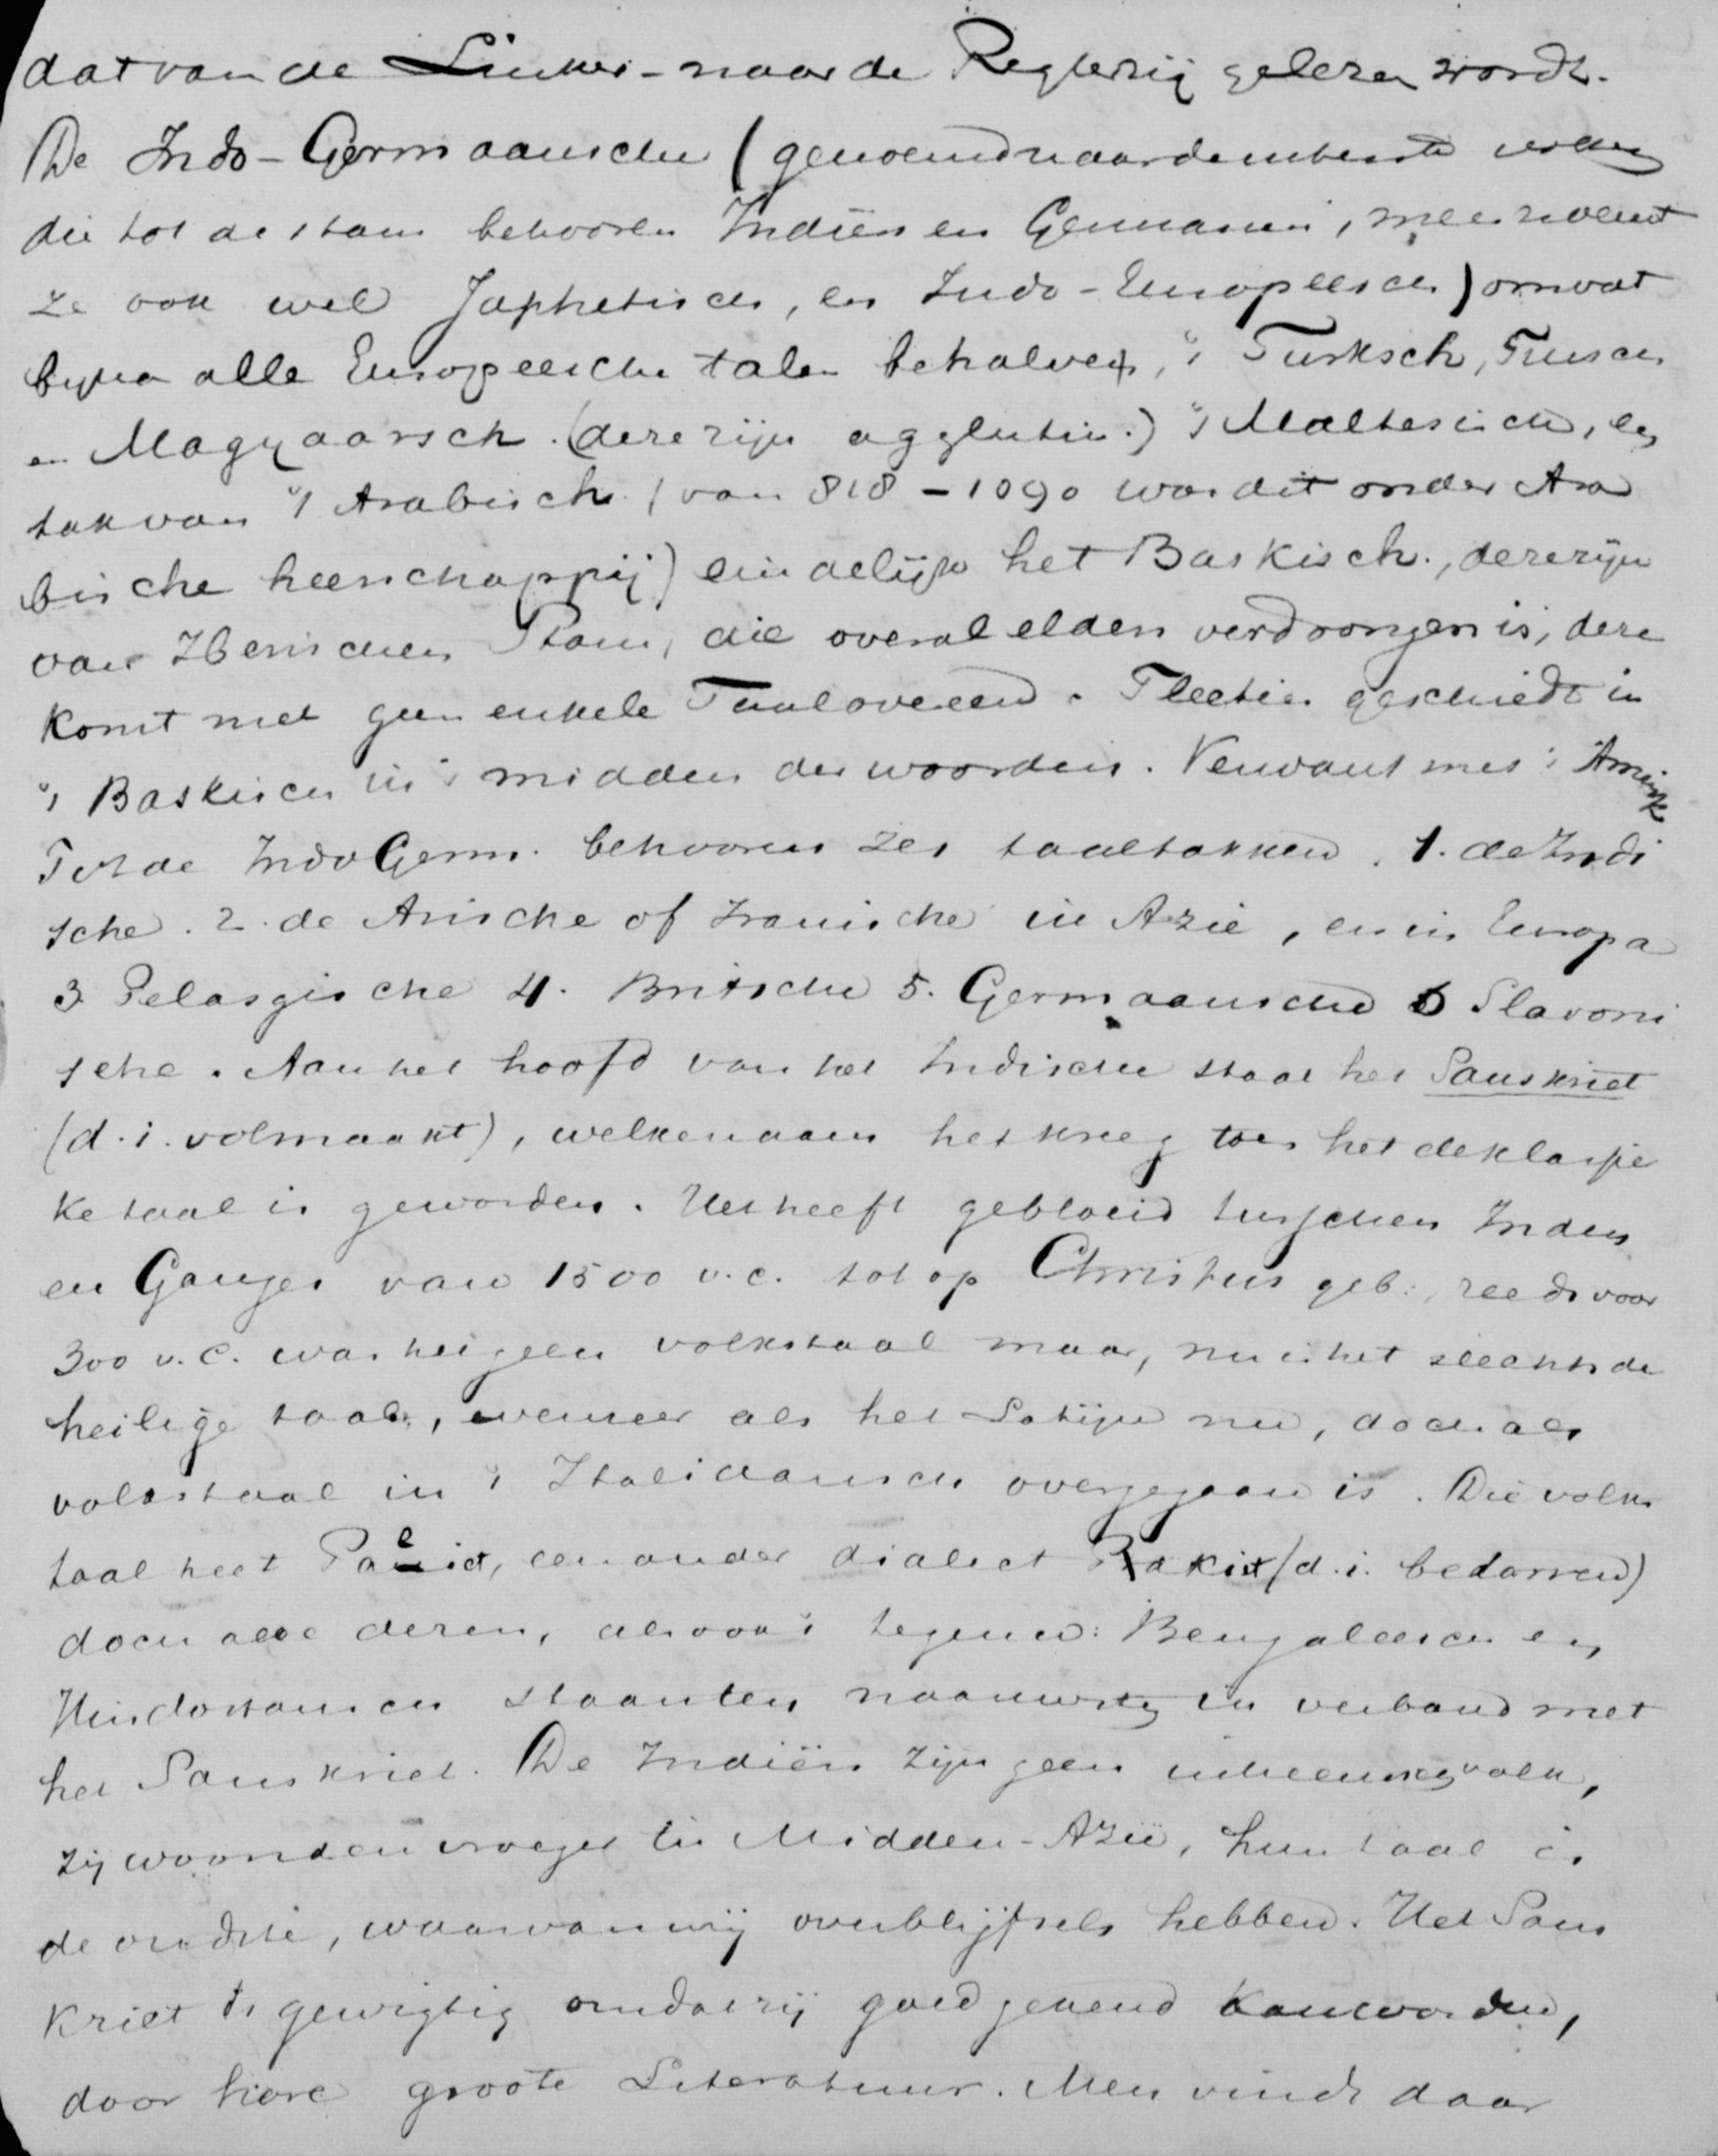 dat van de Linker- naar de Regterzij gelezen wordt.
De Indo-Germaansche (genoemd naar de uiterste volken
die tot de stam behooren Indiërs en Germanen, men noemt
ze ook wel Japhetisch, en Indo-Europeesch) omvat
byna alle Europeesche talen behalven, 't Turksch, Finsch
en Magyaarsch. (deze zijn agglutin.) 't Maltesische, een
tak van 't Arabisch (van 818-1090 was dit onder Ara
bische heerschappij) eindelijk het Baskisch., deze zijn
van Iberischen Stam, die overal elders verdrongen is, deze
komt met geen enkele Taal overeen. Flectien geschiedt in
't Baskisch in 't midden der woorden. Verwant met 't Amerik
Tot de IndoGerm. behooren zes taaltakken. 1. de Indi
sche. 2. de Arische of Iranische in Azie, en in Europa
3 Pelasgische 4. Britsche 5. Germaansche 6 Slavoni
sche. Aan het hoofd van het Indische staat het Sanskriet
(d.i. volmaakt), welke naam het kreeg toen het de klassie
ke taal is geworden. Het heeft gebloeid tusschen Indus
en Ganges van 1500 v.c. tot op Christus geb:, reeds voor
300 v.C. was het geen volkstaal maar, nu is het slechts de
heilige taal, evenzeer als het Latijn nu, doch als
volkstaal in 't Italidaansch overgegaan is. Die volks
taal heet Palid, een ander dialect Prakit (d.i. bedorven)
doch alle dezen, als ook 't tegenw: Bengaleesch en
Hindostansch staan ten naauwste in verband met
het Sanskriet. De Indiërs zijn geen inheemsch volk,
zij woonden vroeger in Midden-Azië, hun taal is
de oudste, waarvan wij overblijfsels hebben. Het Sans
kriet is gewigtig omdat zij goed gekend kan worden,
door hare groote Literatuur. Men vindt daar